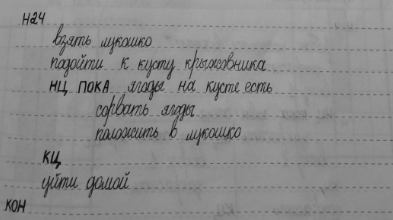 нач
взять лукошко
подойти к кусту крыжовника
нц пока ягоды на кусте есть
сорвать ягоды
положить в лукошко
кц
уйти домой
кон